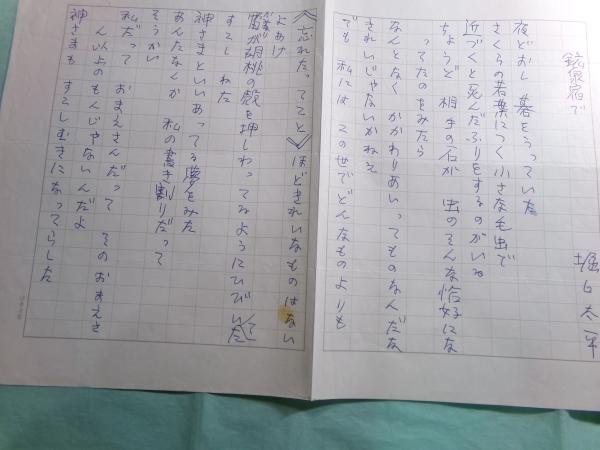 鉱泉宿で
堀口太平
夜どおし 碁をうっていた
さくらの若葉につく小さな毛虫で
近づくと死んだふりをするのがいる
ちょうど 相手の石が 虫のそんな恰好にな
ってたのをみたら
なんとなく かかわりあいってものなんだな
きれいじゃないかねえ
でも 私には この世でどんなものよりも
《忘れたってこと》ほどきれいなものはない
よあけ
雷が胡桃の殻を押しわってみるようにひびいて
すこし ねた
神さまといいあってる夢をみた
あんたなんか 私の書き割りだって
そうかい
私だって おまえさんだって そのおまえさ
ん以上のもんじゃないんだよ
神さまも すこしむきになってらした